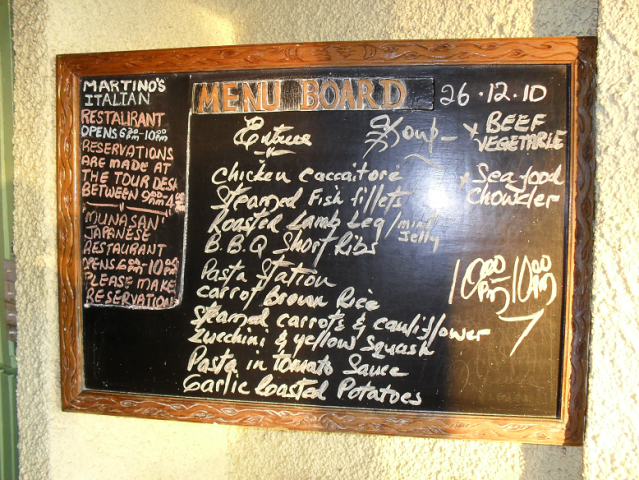 MARTINO'S
ITALIAN
RESTAURANT
OPENS 6:30PM - 10:00PM
RESERVATIONS
ARE MADE AT
THE TOUR DESK
BETWEEN 9:00AM 4:00
"MUNASAN"
JAPANESE
RESTAURANT
OPENS 6:00PM - 10:00PM
PLEASE MAKE
RESERVATION
MENU BOARD
26.12.10
Entree
Chicken Caccaitore
Steamed Fish fillets
Roasted Lamb Leg/mint
Jelly
B.B.Q Short Ribs
Pasta Station
Carrot Brown Rice
Steamed carrots & cauliflower
Zucchini & yellow Squash
Pasta in tomato Sauce
Garlic Roasted Potatoes
Soup -
x BEEF
VEGETABLE
x Sea food
Chowder